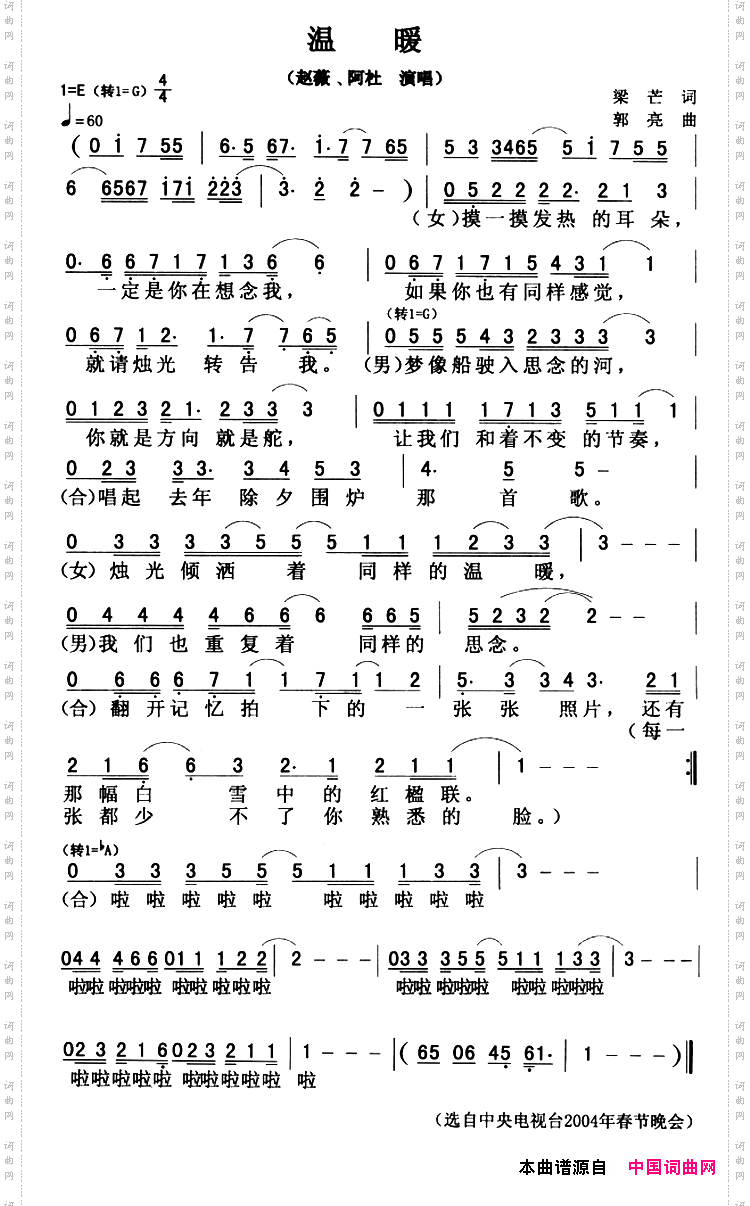 温 暖
（赵薇、阿杜 演唱）
1=E（转1=G）4/4
♩=60
梁 芒 词
郭 亮 曲
（0 1 7 55 | 6· 5 67· 1· 7 7 65 | 5 3 3465 5 1 7 55 |
6 6567 171 223 | 3· 2 2 - ）| 0 5 2 2 2 2 2· 2 1 3 |
（女）摸一摸发热 的耳 朵，
0· 6 6 7 1 7 1 3 6 6 | 0 6 7 1 7 1 5 4 3 1 1 |
一定是你在想念我， 如果你也有同样感觉，
（转1=G）
0 6 7 1 2· 1· 7 7 6 5 | 0 5 5 5 4 3 2 3 3 3 3 |
就请烛光 转 告 我。（男）梦像船驶入思念的河，
0 1 2 3 2 1· 2 3 3 3 | 0 1 1 1 1 7 1 3 5 1 1 1 |
你就是方向 就是舵， 让我们 和着不变 的节奏，
0 2 3 3 3· 3 4 5 3 | 4· 5 5 - |
（合）唱起 去年 除夕围炉 那 首 歌。
0 3 3 3 5 5 5 1 1 1 2 3 3 | 3 - - - |
（女）烛光倾洒 着 同样的温 暖，
0 4 4 4 4 6 6 6 6 6 5 | 5 2 3 2 2 - - |
（男）我们也重复着 同样的 思念。
0 6 6 6 7 1 1 7 1 1 2 | 5· 3 3 4 3· 2 1 |
（合）翻开记忆拍 下的 一 张 张 照片，还有
（每一
2 1 6 6 3 2· 1 2 1 1 | 1 - - :‖
那幅白 雪中的红楹联。
张都少 不了你熟悉的 脸。）
（转1=♭A）
0 3 3 3 5 5 5 1 1 1 3 3 | 3 - - - |
（合）啦 啦 啦 啦 啦 啦 啦 啦 啦 啦
044 466 011 122 | 2 - - - | 033 355 511 133 | 3 - - - |
啦啦 啦啦啦 啦啦 啦啦啦 啦啦 啦啦啦 啦啦 啦啦啦
023 2216 023 211 | 1 - - - |（65 06 45 61· | 1 - - - ）‖
啦啦啦啦啦 啦啦啦啦啦 啦
（选自中央电视台2004年春节晚会）
本曲谱源自 中国词曲网
词曲网